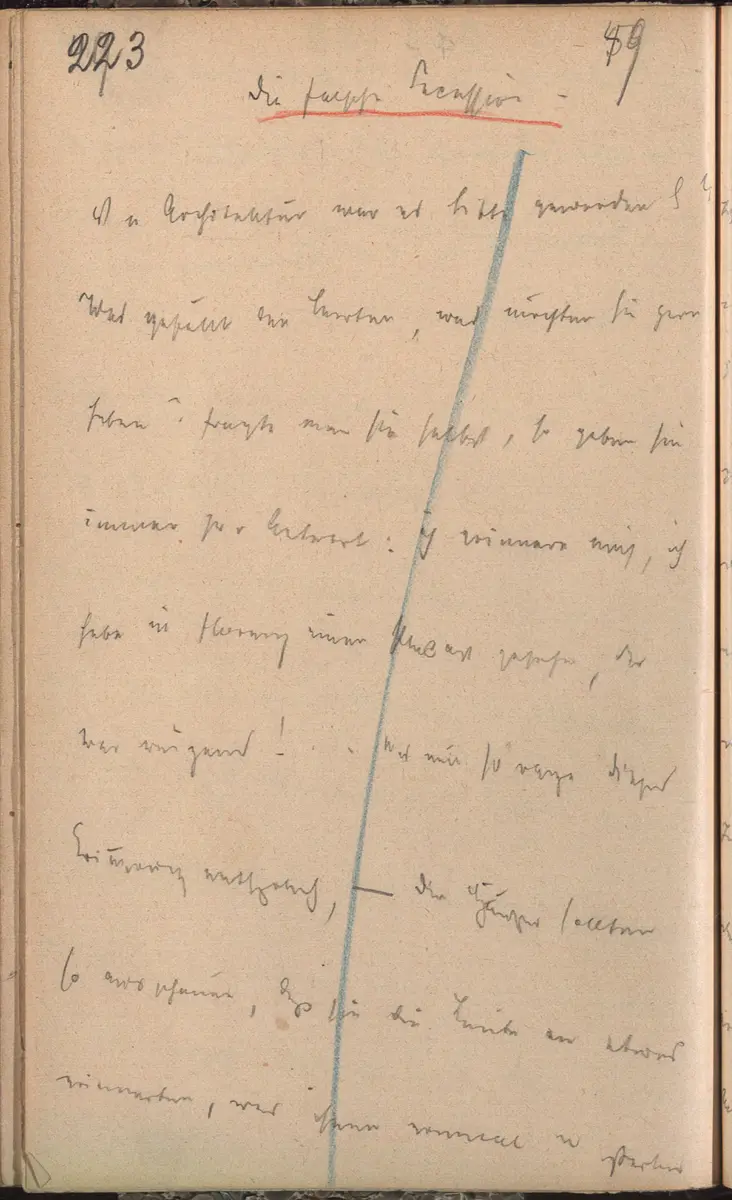 223
89
Die falsche Secession –
In Architektur war es Sitte geworden
Was gefällt den Leuten, was möchten sie gern
haben? fragte man sie selbst, so gaben sie
immer zur Antwort: ich erinnere mich, ich
habe in Florenz einen Palast gesehen, der
war reizend! . . Was nun so vage dieser
Erinnerung entsprach, – die Häuser sollten
so ausschauen, daß sie die Leute an etwas
erinnerten, was ihnen einmal